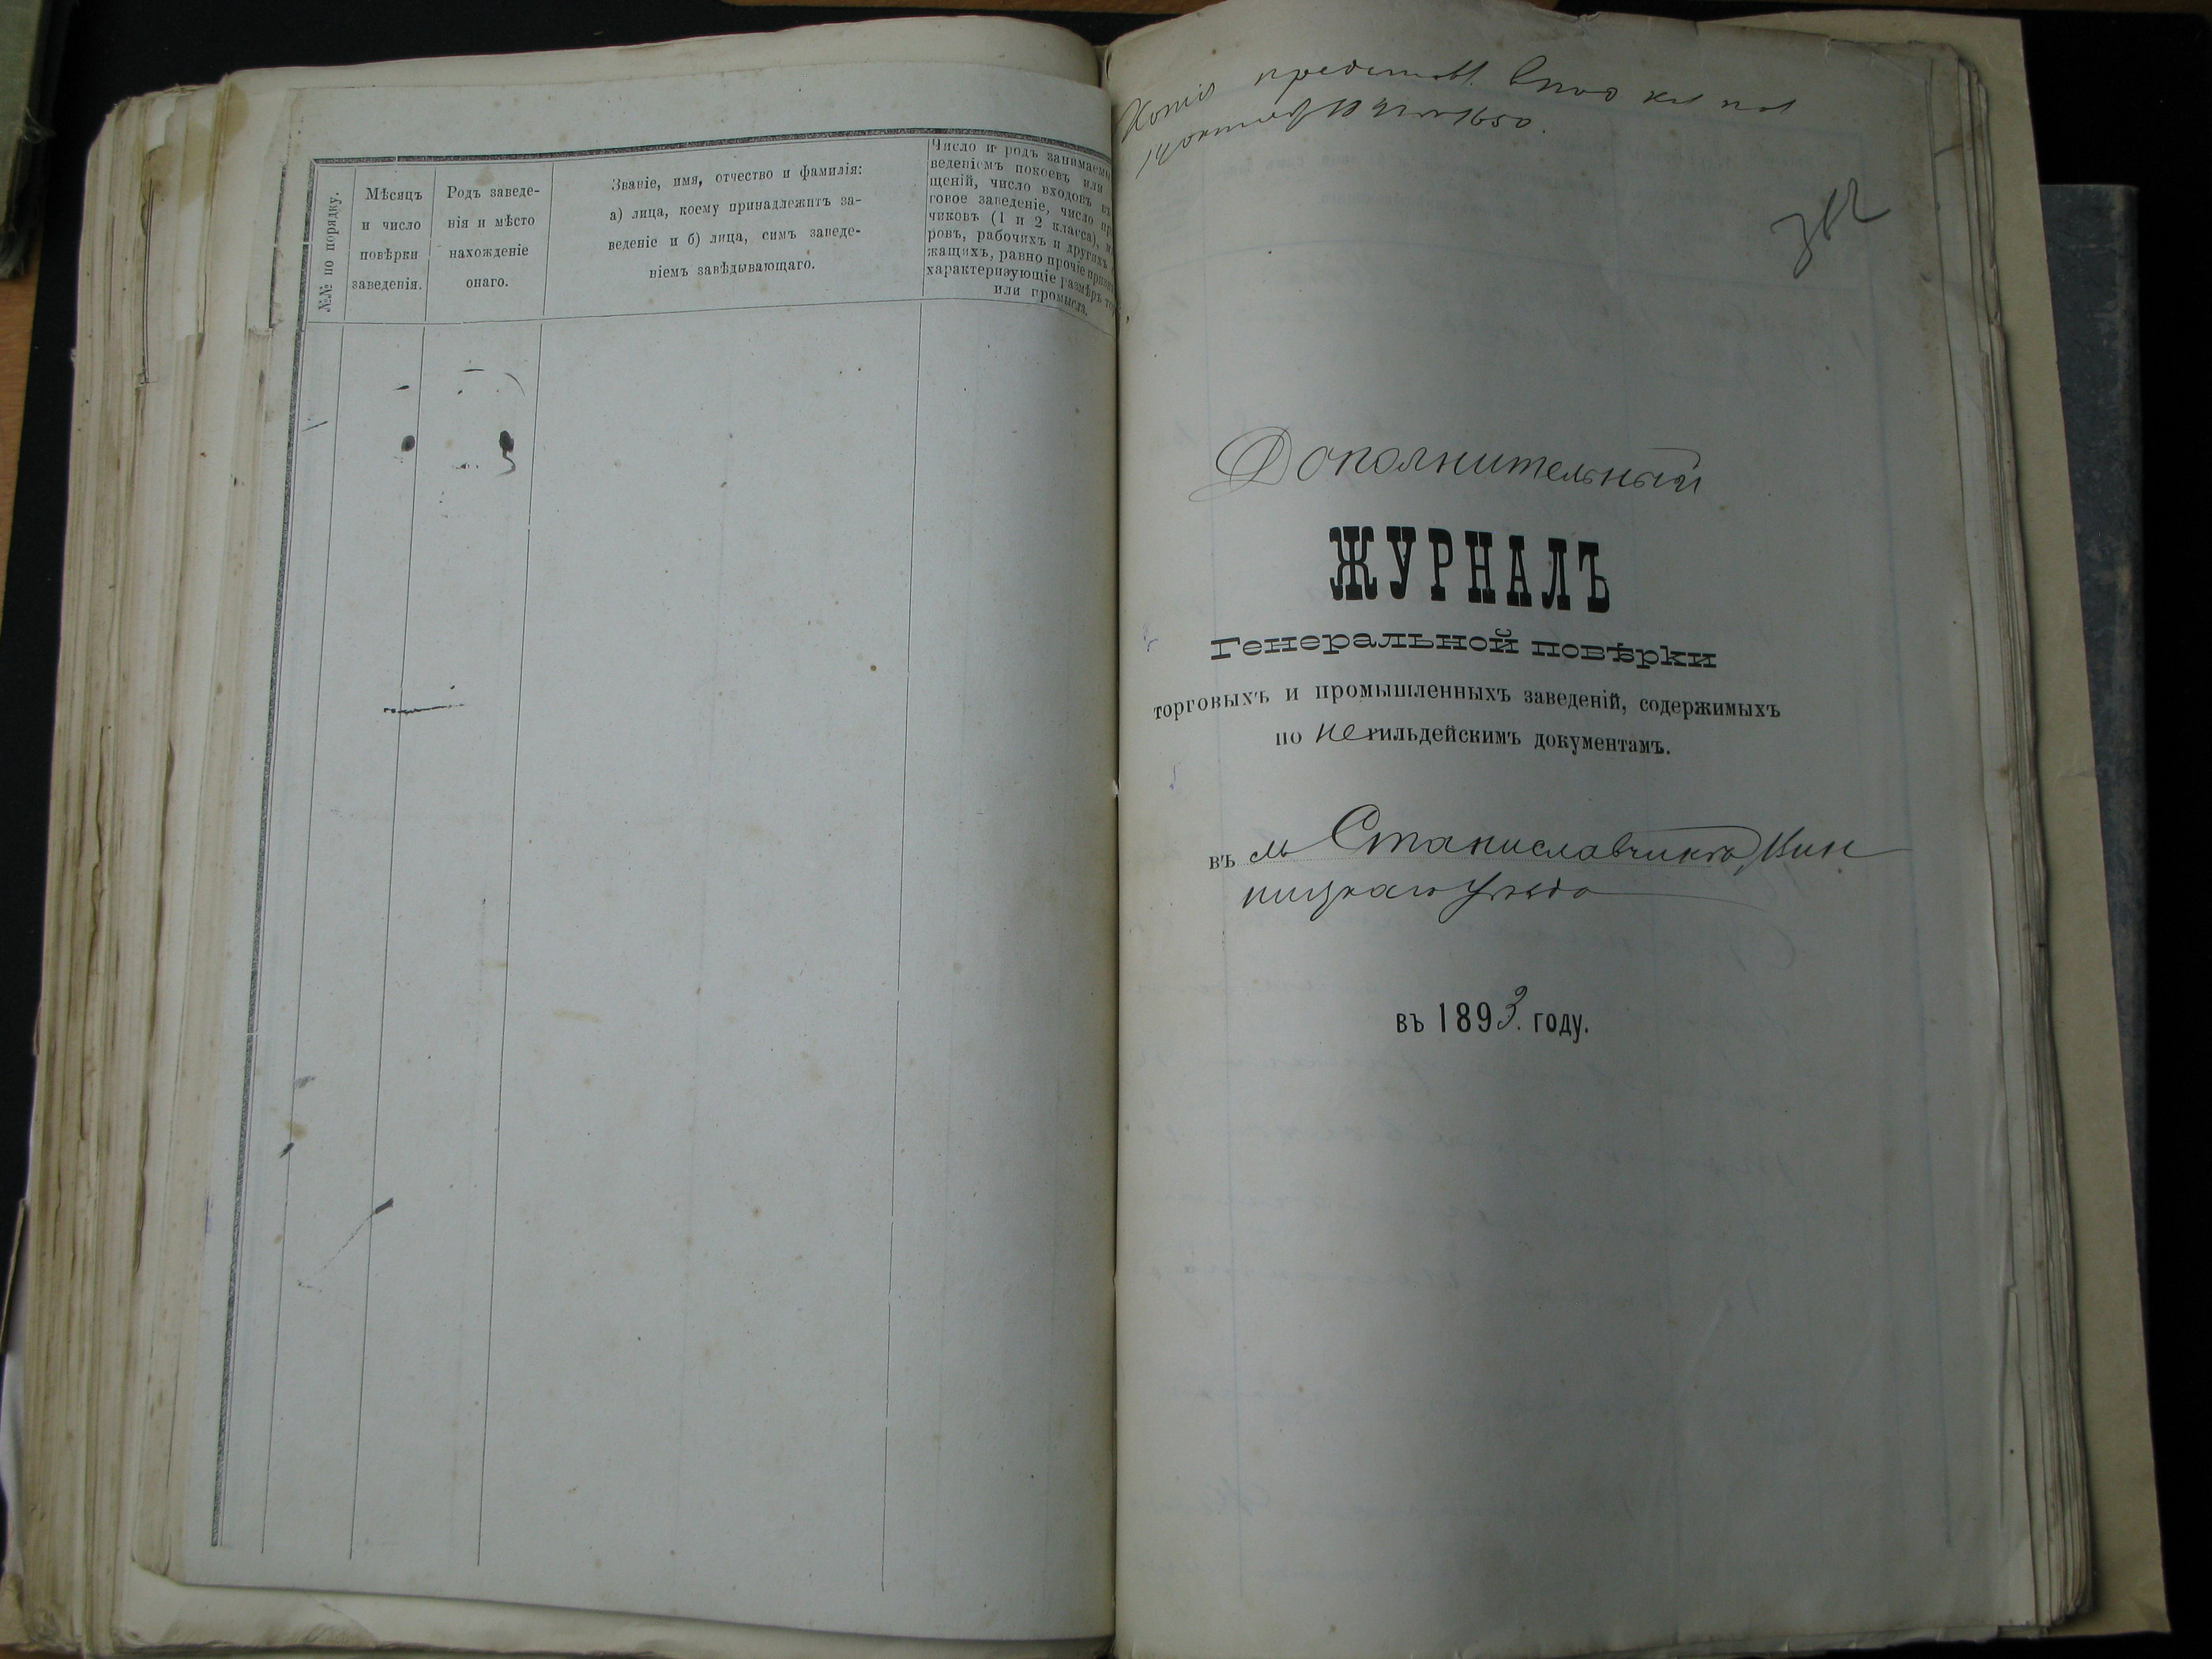 №№ по порядку.
Мѣсяцъ
и число
повѣрки
заведенія.
Родъ заведе-
нія и мѣсто
нахожденіе
онаго.
Званіе, имя, отчество и фамилія:
а) лица, коему принадлежитъ за-
веденіе и б) лица, симъ заведе-
ніемъ завѣдывающаго.
Число и родъ занимаемо
веденіемъ покоевъ или
щеній, число входовъ въ
говое заведеніе, число пр
чиковъ (1 и 2 класса), м
ровъ, рабочихъ и другихъ
жащихъ, равно прочіе призн
характеризующіе размѣръ тор
или промысла.
Копія представл.
Дополнительный
ЖУРНАЛЪ
Генеральной повѣрки
торговыхъ и промышленныхъ заведеній, содержимыхъ
по негильдейскимъ документамъ.
въ м Станиславчикѣ, Вин
ницкаго уѣзда
въ 1893. году.